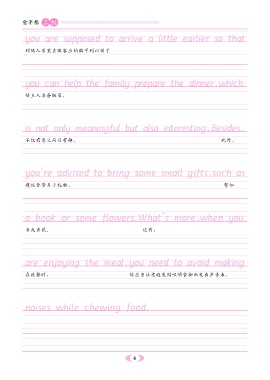 you are supposed to arrive a little earlier so that
you can help the family prepare the dinner.which
帮主人准备饭菜。
is not only meaningful but also interesting.Besides,
不仅有意义而且有趣。 此外,
you're advised to bring some small gifts.such as
建议你带点小礼物。 譬如
a book or some flowers.What's more.when you
书或者花。 还有,
are enjoying the meal.you need to avoid making
在就餐时, 你应当注意避免咀嚼食物而发出声音来。
noises while chewing food.
4